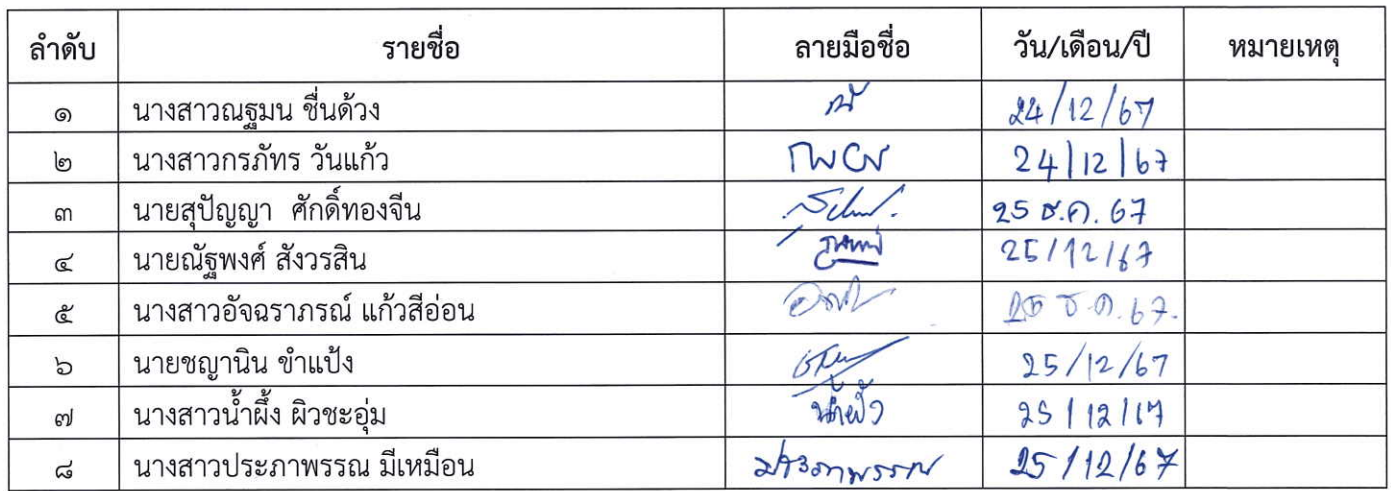 ลำดับ รายชื่อ ลายมือชื่อ วัน/เดือน/ปี หมายเหตุ
๑ นางสาวณฐมน ชื่นด้วง 24/12/67
๒ นางสาวกรภัทร วันแก้ว 24/12/67
๓ นายสุปัญญา ศักดิ์ทองจีน 25 ธ.ค. 67
๔ นายณัฐพงศ์ สังวรสิน 25/12/67
๕ นางสาวอัจฉราภรณ์ แก้วสีอ่อน ธ.ค. 67.
๖ นายชญานิน ขำแป้ง 25/12/67
๗ นางสาวน้ำผึ้ง ผิวชะอุ่ม น้ำผึ้ง 25/12/67
๘ นางสาวประภาพรรณ มีเหมือน ประภาพรรณ 25/12/67